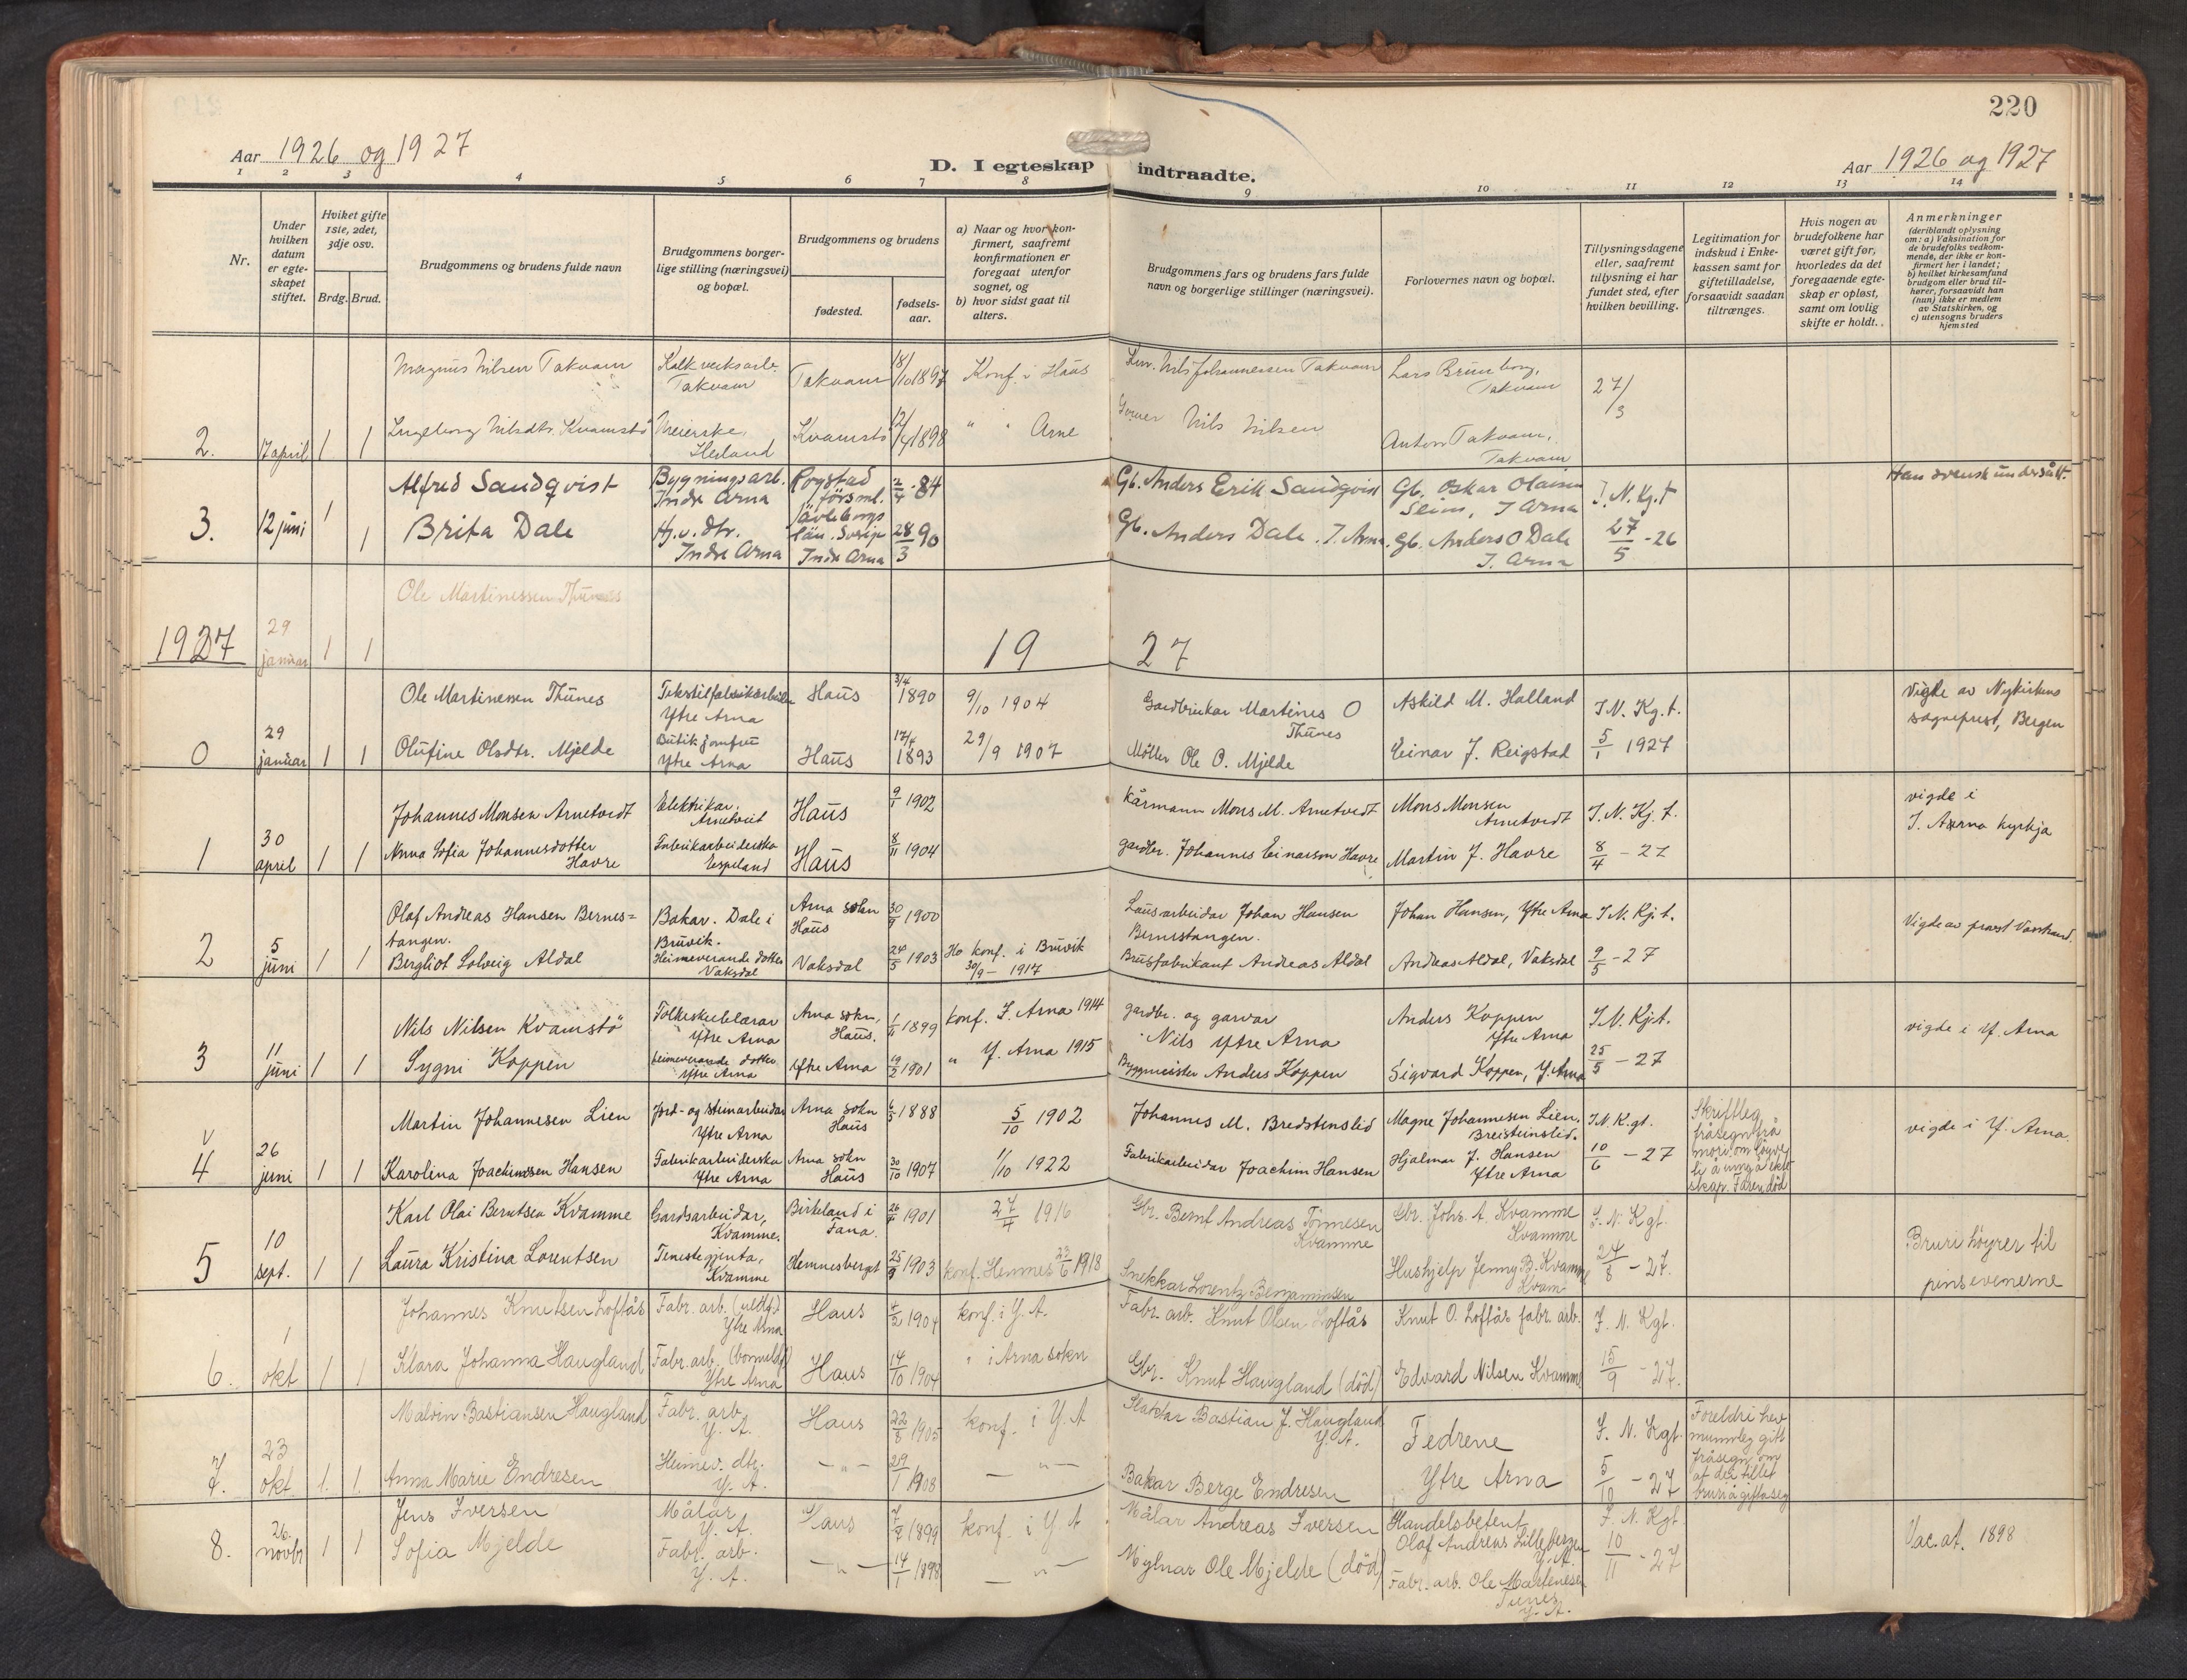 220
Aar 1926 og 1927
D. I egteskap indtraadte.
Aar 1926 og 1927
1 2 3 4 5 6 7 8 9 10 11 12 13 14
Nr.
Under hvilken datum er egteskapet stiftet.
Hviket gifte 1ste, 2det, 3dje osv.
Brdg. Brud.
Brudgommens og brudens fulde navn
Brudgommens borgerlige stilling (næringsvei) og bopæl.
Brudgommens og brudens
fødested.
fødselsaar.
a) Naar og hvor konfirmert, saafremt konfirmationen er foregaat utenfor sognet, og
b) hvor sidst gaat til alters.
Brudgommens fars og brudens fars fulde navn og borgerlige stillinger (næringsvei).
Forlovernes navn og bopæl.
Tillysningsdagene eller, saafremt tillysning ei har fundet sted, efter hvilken bevilling.
Legitimation for indskud i Enkekassen samt for giftetilladelse, forsaavidt saadan tiltrænges.
Hvis nogen av brudefolkene har været gift før, hvorledes da det foregaaende egteskap er opløst, samt om lovlig skifte er holdt.
Anmerkninger (deriblandt oplysning om: a) Vaksination for de brudefolks vedkommende, der ikke er konfirmert her i landet; b) hvilket kirkesamfund brudgom eller brud tilhører, forsaavidt han (hun) ikke er medlem av Statskirken, og c) utensogns bruders hjemsted
Magnus Nilsen Takvam
Kalkverksarb. Takvam
Takvam
18/10 1897
Konf. i Haus
Nils Johannessen Takvam
Lars Brunborg, Takvam
27/3
2. 17 april 1 1
Ingeborg Nilsdtr. Kvamstö
Meierske, Herland
Kvamstö
12/4 1898
" " Arne
Nils Nilsen
Anton Takvam, Takvam
3. 12 juni 1 1
Alfred Sandqvist
Bygningsarb. Indre Arna
Rogstad förs ml. Jävleborgs län. Sverje
2/4 - 84
Gb. Anders Erik Sandqvist
Gb. Oskar Olaisen Seim, I Arna
I. N. Kg. t
Han svensk undersått.
Brita Dale
Hj. v. dtr. Indre Arna
Indre Arna
28/3 90
Gb. Anders Dale. I. Arna.
Gb. Anders O Dale I. Arna
27/5 - 26
Ole Martinessen Thunes
1927 29 januar 1 1
19 27
0 29 januar 1 1
Ole Martinesen Thunes
Tekstilfabrikarbeider Ytre Arna
Haus
3/4 1890
9/10 1904
Gardbrukar Martines O Thunes
Askild M. Halland
I N. Kg. t.
Vigde av Nykirkens sogneprest, Bergen
Olufine Olsdtr. Mjelde
Butikjomfru Ytre Arna
Haus
17/4 1893
29/9 1907
Möller Ole O. Mjelde
Einar J. Reigstad
5/1 1927
1 30 april 1 1
Johannes Monsen Arnetvedt
Elektrikar. Arnetveit
Haus
9/1 1902
Kårmann Mons M. Arnetvedt
Mons Monsen Arnetvedt
I. N. Kj. t.
vigde i I. Arna kyrkja
Anna Sofia Johannesdotter Havre
Fabrikarbeiderska Espeland
Haus
8/11 1904
gardbr. Johannes Einarson Havre
Martin J. Havre
8/4 - 27
2 5 juni 1 1
Olaf Andreas Hansen Bernestangen.
Bakar. Dale i Bruvik.
Arna sokn Haus
30/9 1900
Lausarbeidar Johan Hansen Bernestangen.
Johan Hansen, Ytre Arna
I N. Kj. t.
Vigde av prost
Bergliot Solveig Aldal
Heimeverande dotter Vaksdal
Vaksdal
24/5 1903
Ho konf. i Bruvik 30/9 - 1917
Brusfabrikant Andreas Aldal
Andreas Aldal, Vaksdal
9/5 - 27
3 11 juni 1 1
Nils Nilsen Kvamstö
Folkeskulelærar Ytre Arna
Arna sokn, Haus.
1/11 1899
konf. I. Arna 1914
gardbr. og garvar Nils Ytre Arna
Anders Koppen Ytre Arna
I N. Kj. t.
vigde i Y. Arna
Sygni Koppen
heimeverande dotter Ytre Arna
Ytre Arna
19/2 1901
" Y. Arna 1915
Byggmeister Anders Koppen
Sigvard Koppen, Y. Arna
25/5 - 27
4 26 juni 1 1
Martin Johannesen Lien
Jord- og steinarbeidar Ytre Arna
Arna sokn Haus
6/5 1888
5/10 1902
Johannes M. Bredstenslid
Magne Johannesen Lien. Breisteinslid.
I N. K. gt.
Skriftleg fråsegn frå mori om löyve til å inngå ekteskap. Faren död
vigde i Y. Arna.
Karolina Joachimsen Hansen
Fabrikarbeiderska Ytre Arna
Arna sokn Haus
30/10 1907
1/10 1922
Fabrikarbeidar Joachim Hansen
Hjalmar J. Hansen Ytre Arna
10/6 - 27
5 10 sept. 1 1
Karl Olai Berntsen Kvamme
Gardsarbeidar, Kvamme.
Birkeland i Fana.
26/4 1901
27/4 1916
Gbr. Bernt Andreas Tönnesen Kvamme
Gbr. Johs. A. Kvamme Kvamme
I. N. Kgt.
Bruri höyrer til pinsevenerne
Laura Kristina Lorentsen
Tenestegjenta, Kvamme
Hemnesberget
25/9 1903
konf. Hemnes 23/6 1918
Snekkar Lorentz Benjaminsen
Hushjelp Jenny B. Kvamme Kvam
24/8 - 27.
6. 1 okt 1 1
Johannes Knutsen Loftås
Fabr. arb. Ytre Arna
Haus
4/2 1904
konf. i Y. A.
Fabr. arb. Knut Olsen Loftås
Knut O. Loftås fabr. arb.
I. N. Kgt.
Klara Johanna Haugland
Fabr. arb. Ytre Arna
Haus
14/10 1904
" i Arna sokn
Gbr. Knut Haugland (död)
Edvard Nilsen Kvamme
15/9 - 27.
7. 23 okt 1. 1.
Malvin Bastiansen Haugland
Fabr. arb. Y. A.
Haus
22/8 1905
konf. i Y. A
Slaktar Bastian J. Haugland Y. A.
Fedrene
I. N. Kgt.
Foreldri hev munnleg gitt fråsegn om at dei tillet bruri å gifta seg
Anna Marie Endresen
Heimev. dtr. Y. A.
— " —
29/1 1908
— " —
Bakar Berge Endresen
Ytre Arna
5/10 - 27
8. 26. novbr 1 1
Jens Iversen
Målar Y. A.
Haus
7/7 1899
konf. i Y A
Målar Andreas Iversen
Handelsbetent Olaf Andreas Lillebergen Y. A.
I. N. Kgt.
Vac. at. 1898
Sofia Mjelde
Fabr. arb. Y. A.
— " —
14/1 1898
— " —
Mylnar Ole Mjelde (död)
Fabr. arb. Ole Martinesen Tunes Y. A.
10/11 - 27